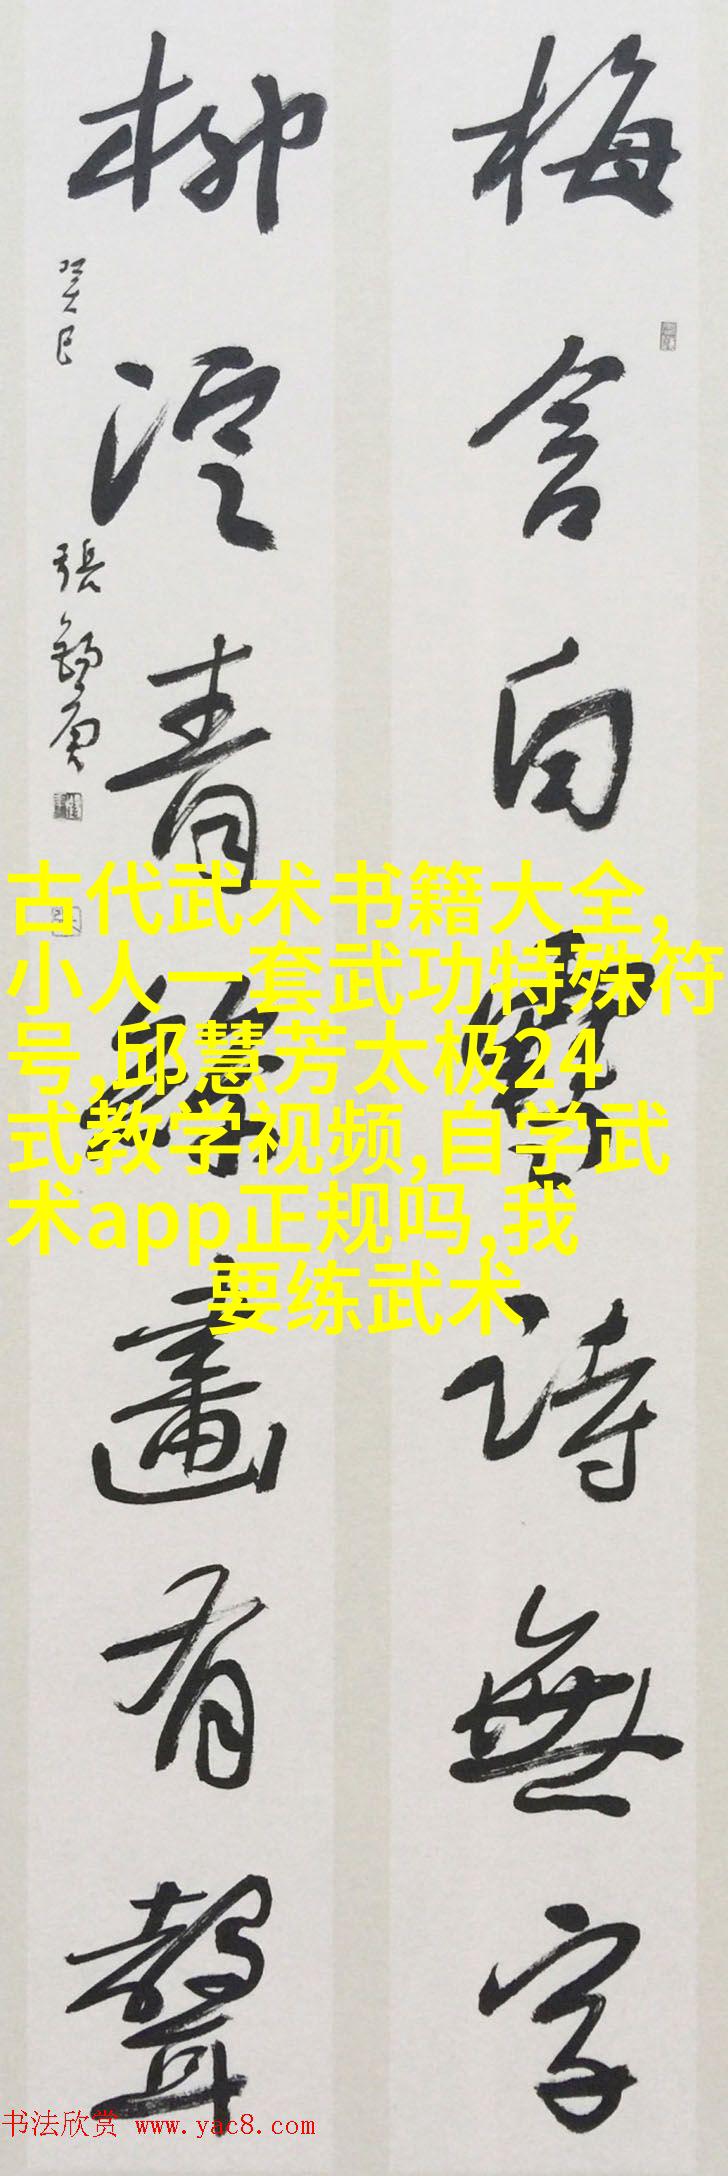 梅含白雪詩無字
柳泛青絲畫有聲
癸巳
古代武术书籍大全,
小人一套武功特殊符
号,邱慧芳太极24
式教学视频,自学武
术app正规吗,我
要练武术
书法欣赏 www.yac8.com